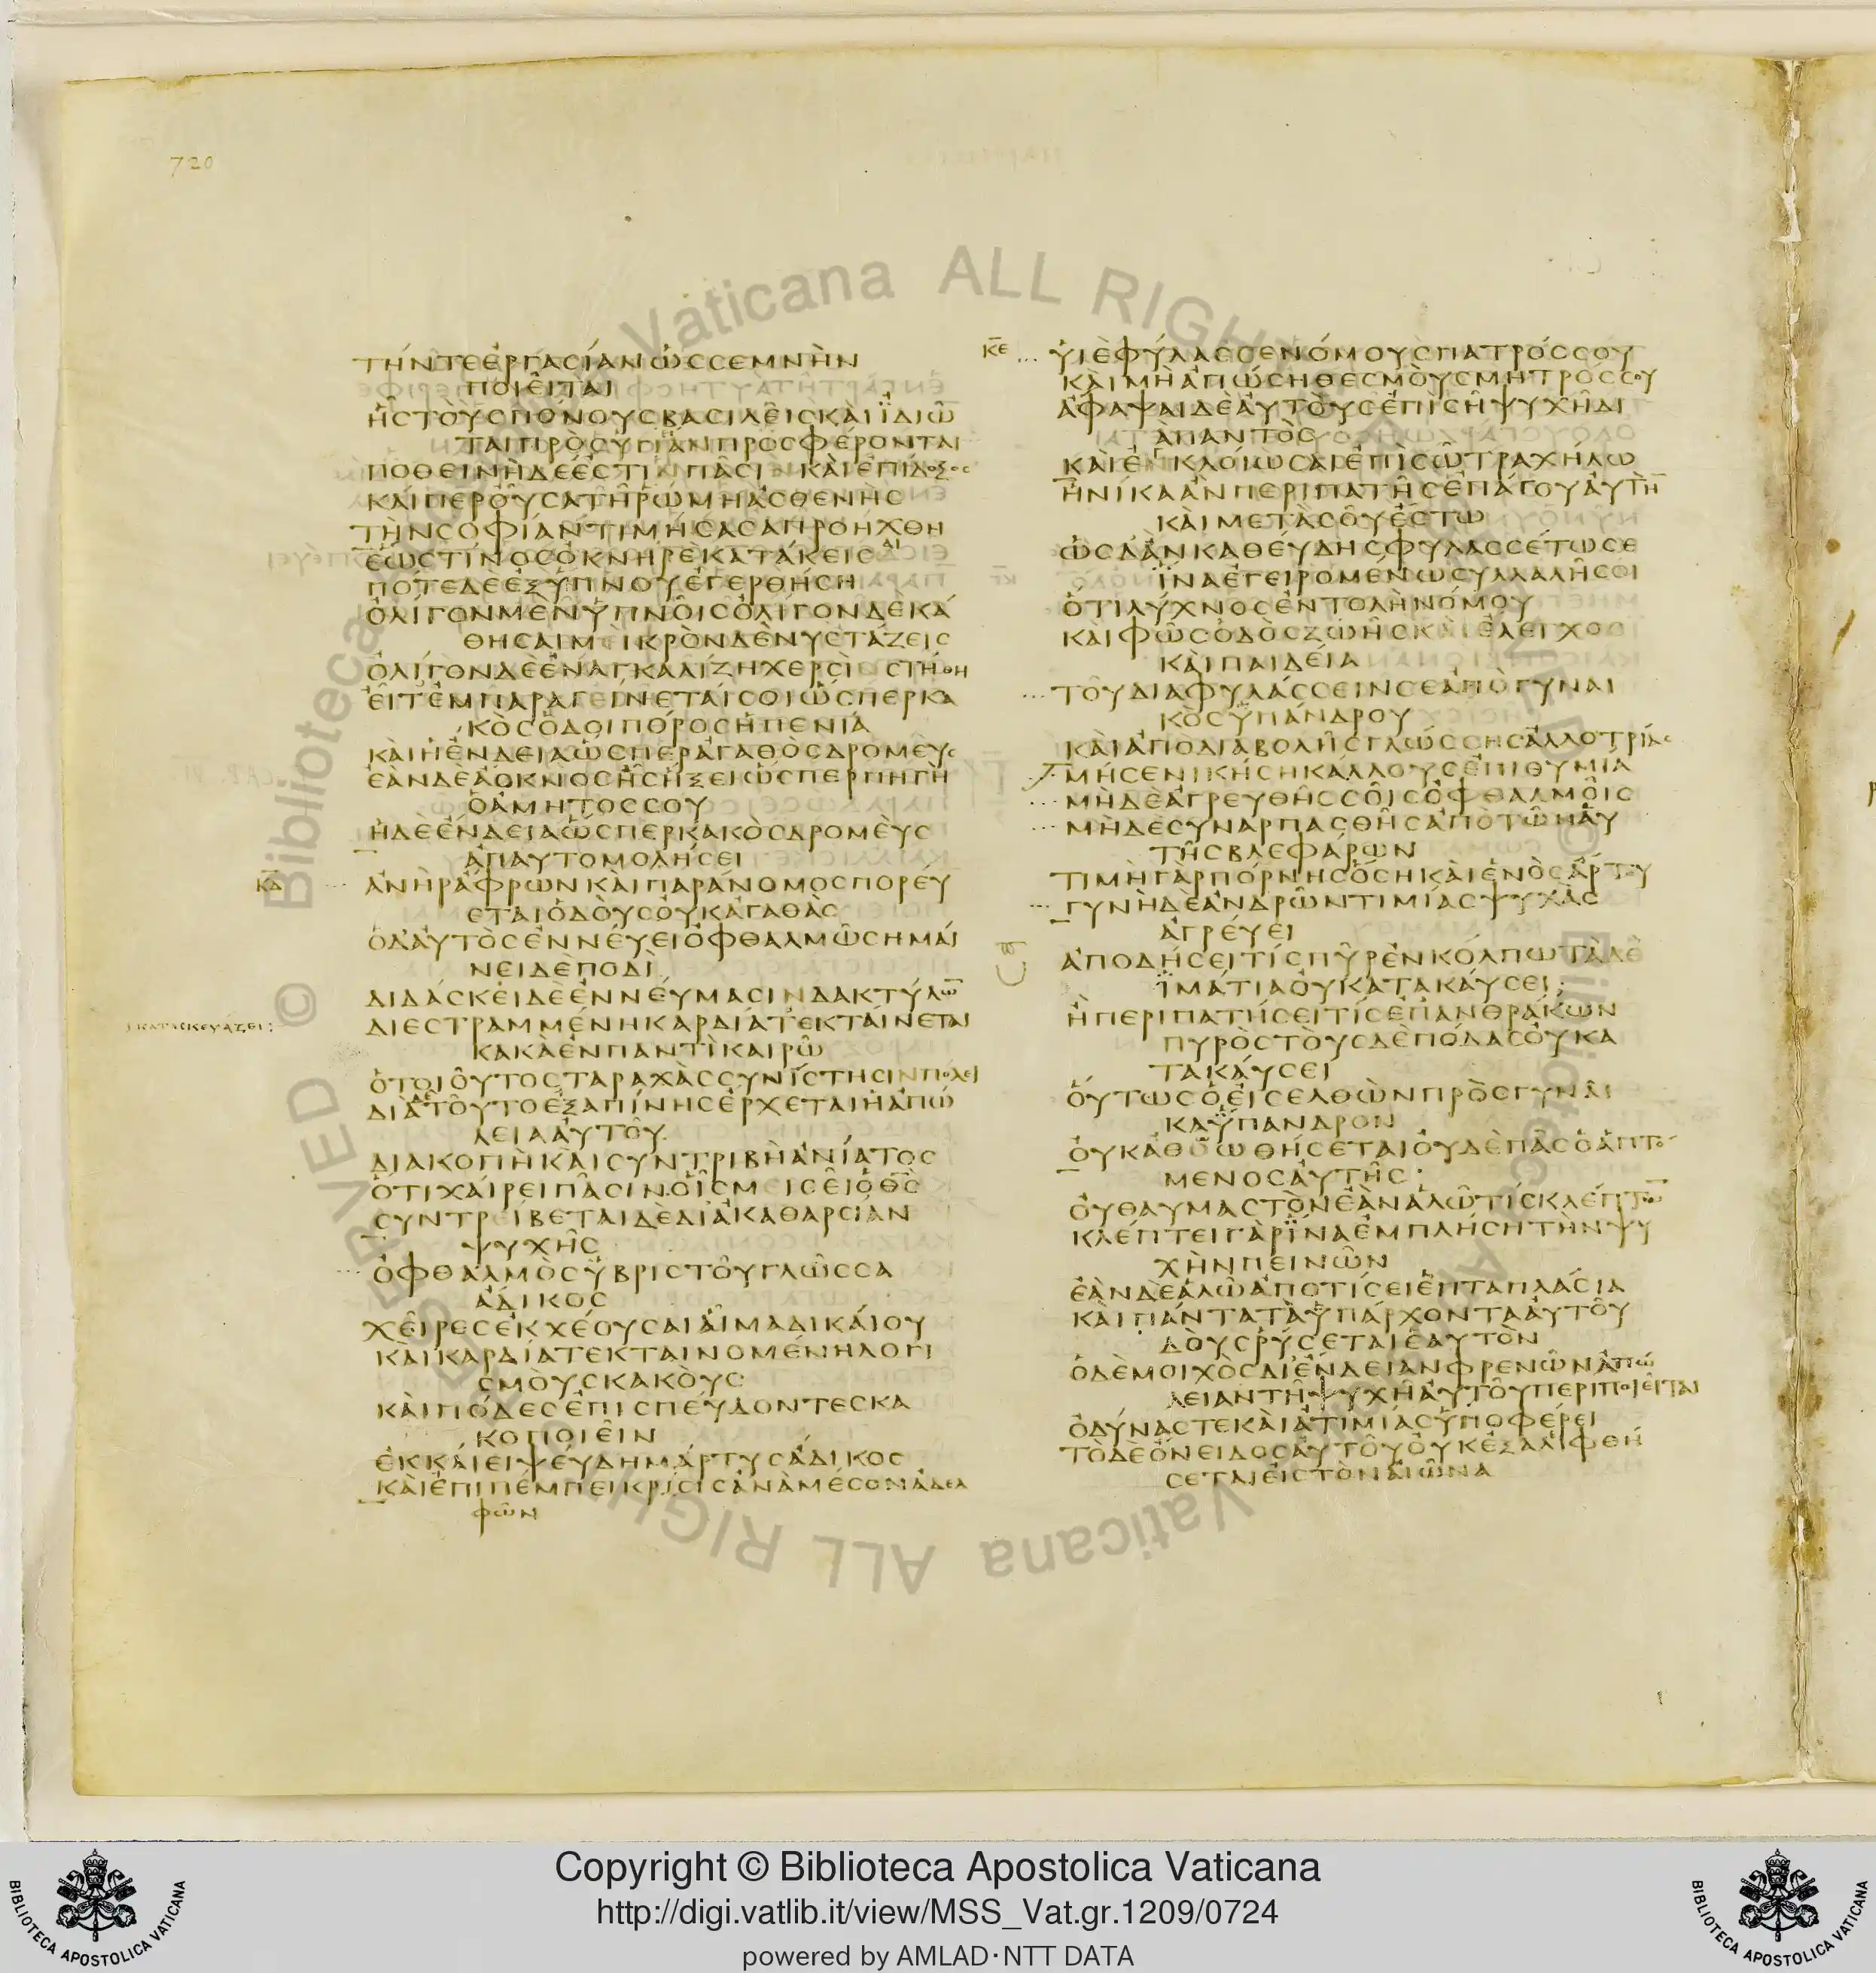 720
ΤΗΝΤΕΕΡΓΑΣΙΑΝΩΣΣΕΜΝΗΝ
ΠΟΙΕΙΤΑΙ
ΗΣΤΟΥΣΠΟΝΟΥΣΒΑΣΙΛΕΙΣΚΑΙΪΔΙΩ̅
ΤΑΙΠΡΟΣΥΓΙΑΝΠΡΟΣΦΕΡΟΝΤΑΙ
ΠΟΘΕΙΝΗΔΕΕΣΤΙΝΠΑΣΙΝΚΑΙΕΠΙΔΟΞΟΣ
ΚΑΙΠΕΡΟΥΣΑΤΗΡΩΜΗΑΣΘΕΝΗΣ
ΤΗΝΣΟΦΙΑΝΤΙΜΗΣΑΣΑΠΡΟΗΧΘΗ
ΕΩΣΤΙΝΟΣΟΚΝΗΡΕΚΑΤΑΚΕΙΣΑΙ
ΠΟΤΕΔΕΕΞΥΠΝΟΥΕΓΕΡΘΗΣΗ
ΟΛΙΓΟΝΜΕΝΫΠΝΟΙΣΟΛΙΓΟΝΔΕΚΑ
ΘΗΣΑΙΜΕΙΚΡΟΝΔΕΝΥΣΤΑΖΕΙΣ
ΟΛΙΓΟΝΔΕΕΝΑΓΚΑΛΙΖΗΧΕΡΣΙΣΤΗΘΗ
ΕΙΤΕΜΠΑΡΑΓΕΙΝΕΤΑΙΣΟΙΩΣΠΕΡΚΑ
ΚΟΣΟΔΟΙΠΟΡΟΣΗΠΕΝΙΑ
ΚΑΙΗΕΝΔΕΙΑΩΣΠΕΡΑΓΑΘΟΣΔΡΟΜΕΥΣ
ΕΑΝΔΕΑΟΚΝΟΣΗΣΗΞΕΙΩΣΠΕΡΠΗΓΗ
ΟΑΜΗΤΟΣΣΟΥ
ΗΔΕΕΝΔΕΙΑΩΣΠΕΡΚΑΚΟΣΔΡΟΜΕΥΣ
ΑΠΑΥΤΟΜΟΛΗΣΕΙ
ΚΔ ΑΝΗΡΑΦΡΩΝΚΑΙΠΑΡΑΝΟΜΟΣΠΟΡΕΥ
ΕΤΑΙΟΔΟΥΣΟΥΚΑΓΑΘΑΣ
ΟΔΑΥΤΟΣΕΝΝΕΥΕΙΟΦΘΑΛΜΩΣΗΜΑΙ
ΝΕΙΔΕΠΟΔΙ
ΔΙΔΑΣΚΕΙΔΕΕΝΝΕΥΜΑΣΙΝΔΑΚΤΥΛΩ̅
ΚΑΤΑΣΚΕΥΑΖΕΙ: ΔΙΕΣΤΡΑΜΜΕΝΗΚΑΡΔΙΑΤΕΚΤΑΙΝΕΤΑΙ
ΚΑΚΑΕΝΠΑΝΤΙΚΑΙΡΩ
ΟΤΟΙΟΥΤΟΣΤΑΡΑΧΑΣΣΥΝΙΣΤΗΣΙΝΠΟΛΕΙ
ΔΙΑΤΟΥΤΟΕΞΑΠΙΝΗΣΕΡΧΕΤΑΙΗΑΠΩ
ΛΕΙΑΑΥΤΟΥ
ΔΙΑΚΟΠΗΚΑΙΣΥΝΤΡΙΒΗΑΝΙΑΤΟΣ
ΟΤΙΧΑΙΡΕΙΠΑΣΙΝΟΙΣΜΙΣΕΙΟΘ̅Σ̅
ΣΥΝΤΡΕΙΒΕΤΑΙΔΕΔΙΑΚΑΘΑΡΣΙΑΝ
ΨΥΧΗΣ
ΟΦΘΑΛΜΟΣΫΒΡΙΣΤΟΥΓΛΩΣΣΑ
ΑΔΙΚΟΣ
ΧΕΙΡΕΣΕΚΧΕΟΥΣΑΙΑΙΜΑΔΙΚΑΙΟΥ
ΚΑΙΚΑΡΔΙΑΤΕΚΤΑΙΝΟΜΕΝΗΛΟΓΙ
ΣΜΟΥΣΚΑΚΟΥΣ
ΚΑΙΠΟΔΕΣΕΠΙΣΠΕΥΔΟΝΤΕΣΚΑ
ΚΟΠΟΙΕΙΝ
ΕΚΚΑΙΕΙΨΕΥΔΗΜΑΡΤΥΣΑΔΙΚΟΣ
ΚΑΙΕΠΙΠΕΜΠΕΙΚΡΙΣΙΣΑΝΑΜΕΣΟΝΑΔΕΛ
ΦΩΝ
ΚΕ ΥΙΕΦΥΛΑΣΣΕΝΟΜΟΥΣΠΑΤΡΟΣΣΟΥ
ΚΑΙΜΗΑΠΩΣΗΘΕΣΜΟΥΣΜΗΤΡΟΣΣΟΥ
ΑΦΑΨΑΙΔΕΑΥΤΟΥΣΕΠΙΣΗΨΥΧΗΔΙ
ΑΠΑΝΤΟΣ
ΚΑΙΕΓΚΛΟΙΩΣΑΙΕΠΙΣΩΤΡΑΧΗΛΩ
ΗΝΙΚΑΑΝΠΕΡΙΠΑΤΗΣΕΠΑΓΟΥΑΥΤΗ̅
ΚΑΙΜΕΤΑΣΟΥΕΣΤΩ
ΩΣΔΑΝΚΑΘΕΥΔΗΣΦΥΛΑΣΣΕΤΩΣΕ
ΪΝΑΕΓΕΙΡΟΜΕΝΩΣΥΛΛΑΛΗΣΟΙ
ΟΤΙΛΥΧΝΟΣΕΝΤΟΛΗΝΟΜΟΥ
ΚΑΙΦΩΣΟΔΟΣΖΩΗΣΚΑΙΕΛΕΓΧΟΣ
ΚΑΙΠΑΙΔΕΙΑ
ΤΟΥΔΙΑΦΥΛΑΣΣΕΙΝΣΕΑΠΟΓΥΝΑΙ
ΚΟΣΫΠΑΝΔΡΟΥ
ΚΑΙΑΠΟΔΙΑΒΟΛΗΣΓΛΩΣΣΗΣΑΛΛΟΤΡΙΑΣ
ΜΗΣΕΝΙΚΗΣΗΚΑΛΛΟΥΣΕΠΙΘΥΜΙΑ
ΜΗΔΕΑΓΡΕΥΘΗΣΣΟΙΣΟΦΘΑΛΜΟΙΣ
ΜΗΔΕΣΥΝΑΡΠΑΣΘΗΣΑΠΟΤΩΝΑΥ
ΤΗΣΒΛΕΦΑΡΩΝ
ΤΙΜΗΓΑΡΠΟΡΝΗΣΟΣΗΚΑΙΕΝΟΣΑΡΤΟΥ
ΓΥΝΗΔΕΑΝΔΡΩΝΤΙΜΙΑΣΨΥΧΑΣ
ΑΓΡΕΥΕΙ
ΑΠΟΔΗΣΕΙΤΙΣΠΥΡΕΝΚΟΛΠΩΤΑΔΕ
ΪΜΑΤΙΑΟΥΚΑΤΑΚΑΥΣΕΙ;
ΗΠΕΡΙΠΑΤΗΣΕΙΤΙΣΕΠΑΝΘΡΑΚΩΝ
ΠΥΡΟΣΤΟΥΣΔΕΠΟΔΑΣΟΥΚΑ
ΤΑΚΑΥΣΕΙ
ΟΥΤΩΣΟΕΙΣΕΛΘΩΝΠΡΟΣΓΥΝΑΙ
ΚΑΫΠΑΝΔΡΟΝ
ΟΥΚΑΘΟΩΘΗΣΕΤΑΙΟΥΔΕΠΑΣΟΑΠΤΟ
ΜΕΝΟΣΑΥΤΗΣ
ΟΥΘΑΥΜΑΣΤΟΝΕΑΝΑΛΩΤΙΣΚΛΕΠΤΩ̅
ΚΛΕΠΤΕΙΓΑΡΪΝΑΕΜΠΛΗΣΗΤΗΝΨΥ
ΧΗΝΠΕΙΝΩΝ
ΕΑΝΔΕΑΛΩΑΠΟΤΙΣΕΙΕΠΤΑΠΛΑΣΙΑ
ΚΑΙΠΑΝΤΑΤΑΥΠΑΡΧΟΝΤΑΑΥΤΟΥ
ΔΟΥΣΡΥΣΕΤΑΙΕΑΥΤΟΝ
ΟΔΕΜΟΙΧΟΣΔΙΕΝΔΕΙΑΝΦΡΕΝΩΝΑΠΩ
ΛΕΙΑΝΤΗΨΥΧΗΑΥΤΟΥΠΕΡΙΠΟΙΕΙΤΑΙ
ΟΔΥΝΑΣΤΕΚΑΙΑΤΙΜΙΑΣΫΠΟΦΕΡΕΙ
ΤΟΔΕΟΝΕΙΔΟΣΑΥΤΟΥΟΥΚΕΞΑΛΙΦΘΗ
ΣΕΤΑΙΕΙΣΤΟΝΑΙΩΝΑ
© Biblioteca Vaticana ALL RIGHTS RESERVED
Copyright © Biblioteca Apostolica Vaticana
http://digi.vatlib.it/view/MSS_Vat.gr.1209/0724
powered by AMLAD·NTT DATA
BIBLIOTECA APOSTOLICA VATICANA
BIBLIOTECA APOSTOLICA VATICANA